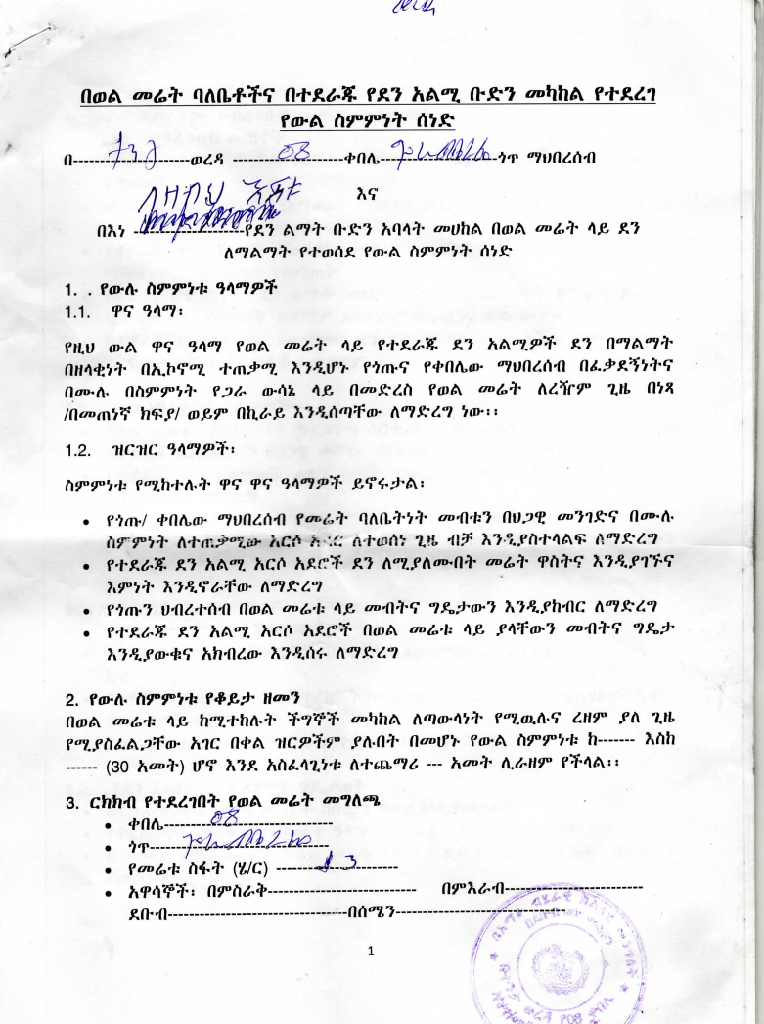 በወል መሬት ባለቤቶችና በተደራጁ የደን አልሚ ቡድን መካከል የተደረገ
የውል ስምምነት ሰነድ
በ----------------------ወረዳ --------08----------ቀበሌ--------------------ጎጥ ማህበረሰብ
እና
በእነ --------------------የደን ልማት ቡድን አባላት መሀከል በወል መሬት ላይ ደን
ለማልማት የተወሰደ የውል ስምምነት ሰነድ
1. . የውሉ ስምምነቱ ዓላማዎች
1.1. ዋና ዓላማ፡
የዚህ ውል ዋና ዓላማ የወል መሬት ላይ የተደራጁ ደን አልሚዎች ደን በማልማት
በዘላቂነት በኢኮኖሚ ተጠቃሚ እንዲሆኑ የጎጡና የቀበሌው ማህበረሰብ በፈቃደኝነትና
በሙሉ በስምምነት የጋራ ውሳኔ ላይ በመድረስ የወል መሬት ለረዥም ጊዜ በነጻ
/በመጠነኛ ክፍያ/ ወይም በኪራይ እንዲሰጣቸው ለማድረግ ነው፡፡
1.2. ዝርዝር ዓላማዎች፡
ስምምነቱ የሚከተሉት ዋና ዋና ዓላማዎች ይኖሩታል፡
• የጎጡ/ ቀበሌው ማህበረሰብ የመሬት ባለቤትነት መብቱን በህጋዊ መንገድና በሙሉ
ስምምነት ለተጠቃሚው አርሶ አደር ለተወሰነ ጊዜ ብቻ እንዲያስተላልፍ ለማድረግ
• የተደራጁ ደን አልሚ አርሶ አደሮች ደን ለሚያለሙበት መሬት ዋስትና እንዲያገኙና
እምነት እንዲኖራቸው ለማድረግ
• የጎጡን ህብረተሰብ በወል መሬቱ ላይ መብትና ግዴታውን እንዲያከብር ለማድረግ
• የተደራጁ ደን አልሚ አርሶ አደሮች በወል መሬቱ ላይ ያላቸውን መብትና ግዴታ
እንዲያውቁና አክብረው እንዲሰሩ ለማድረግ
2. የውሉ ስምምነቱ የቆይታ ዘመን
በወል መሬቱ ላይ ከሚተከሉት ችግኞች መካከል ለጣውላነት የሚዉሉና ረዘም ያለ ጊዜ
የሚያስፈልጋቸው አገር በቀል ዝርዎችም ያሉበት በመሆኑ የውል ስምምነቱ ከ------- እስከ
------ (30 አመት) ሆኖ እንደ አስፈላጊነቱ ለተጨማሪ --- አመት ሊራዘም የችላል፡፡
3. ርክክብ የተደረገበት የወል መሬት መግለጫ
• ቀበሌ--------08-----------------
• ጎጥ-----------------------------
• የመሬቱ ስፋት (ሄ/ር) ----------3-------
• አዋሳኞች፡ በምስራቅ--------------------------- በምእራብ-------------------------
ደቡብ---------------------------------በሰሜን-------------------------------
1